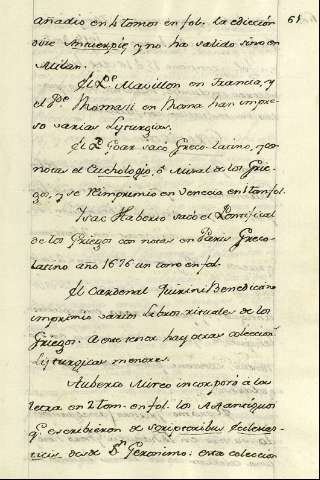 61
añadio en 4 tomos en fol. la edicción
dice Antuerpie, y no ha salido sino en
Milan.
El Pe. Mavillon en Francia, y
el Pde. Thomasi en Roma han impre-
so varias Lyturgias.
El P. Goar sacó Greco-latino, y con
notas el Euchologio, ó Ritual de los Grie-
gos, y se Reimprimio en Venecia en 1 tom. fol.
Isac Haberto sacó el Pontifical
de los Griegos con notas en Paris Greco-
latino año 1676 un tomo en fol.
El Cardenal Quirini Benedictino
imprimio varios Libros rituales de los
Griegos. A este tenor hay otras coleccion.s
Lyturgicas menores.
Auberto Mireo incorporó a la
letra en 2 tom. en fol. los Antiguos
q. escribieron de scriptoribus Ecclesias-
ticis desde Sn. Geronimo: esta coleccion